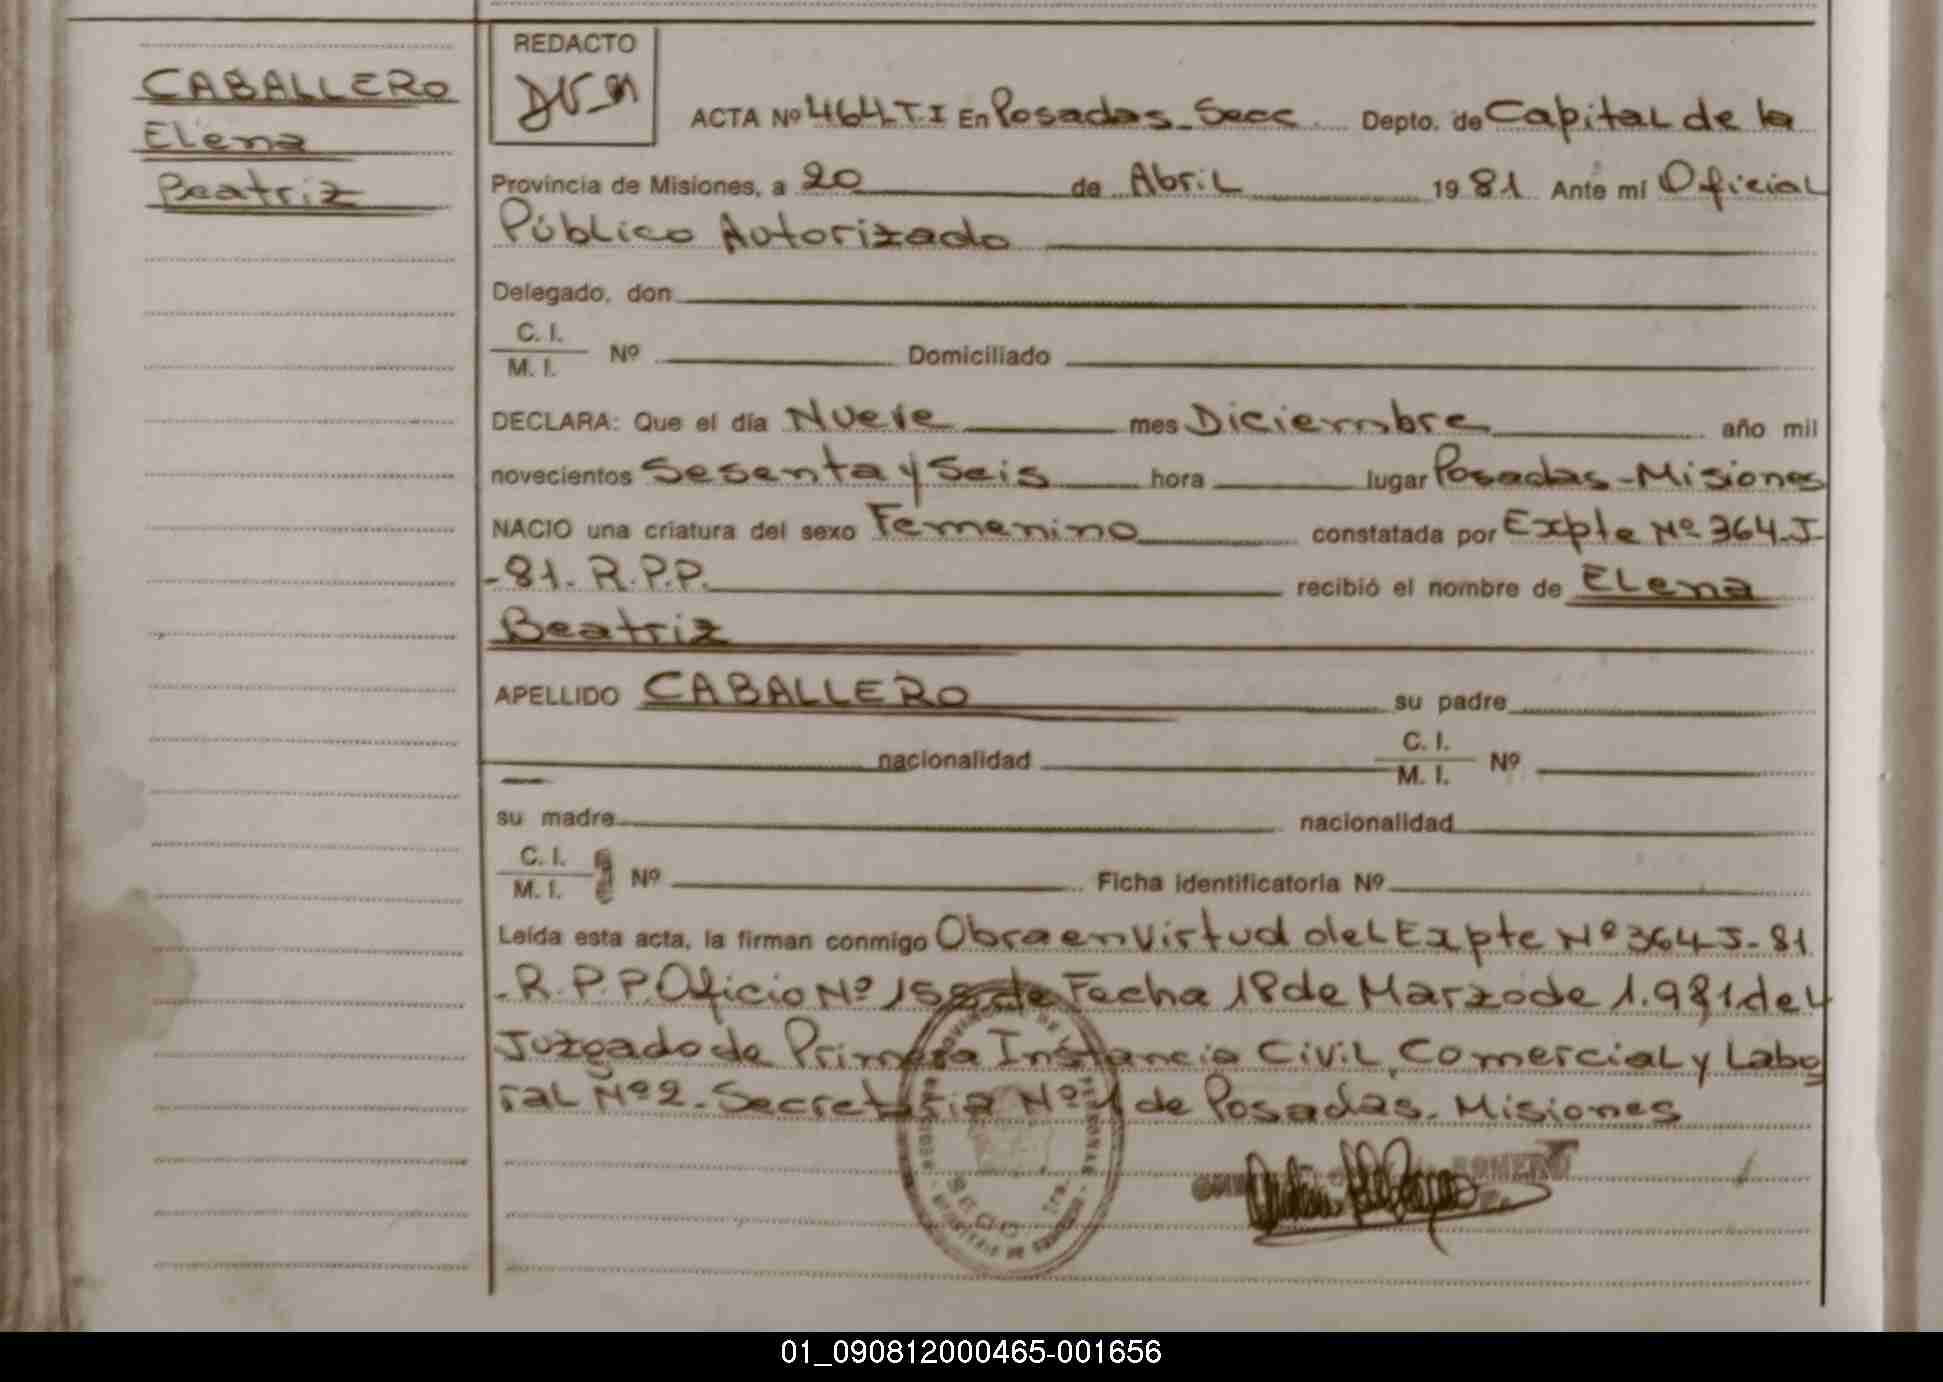 CABALLERO
Elena
Beatriz
REDACTO
ACTA Nº 464.T.I En Posadas-Secc Depto. de Capital de la
Provincia de Misiones, a 20 de Abril 1981 Ante mí Oficial
Público Autorizado
Delegado, don
C. I.
M. I. Nº Domiciliado
DECLARA: Que el día Nueve mes Diciembre año mil
novecientos Sesenta y Seis hora lugar Posadas-Misiones
NACIO una criatura del sexo Femenino constatada por Expte Nº 364-J-
-81. R.P.P. recibió el nombre de Elena
Beatriz
APELLIDO CABALLERO su padre
nacionalidad C. I.
M. I. Nº
su madre nacionalidad
C. I.
M. I. Nº Ficha identificatoria Nº
Leída esta acta, la firman conmigo Obra en Virtud del Expte Nº 364-J-81
-R.P.P. Oficio Nº de Fecha 18 de Marzo de 1.981 del
Juzgado de Primera Instancia Civil, Comercial y Labo
ral Nº 2. Secretaria Nº 1 de Posadas. Misiones
ROMERO
01_090812000465-001656